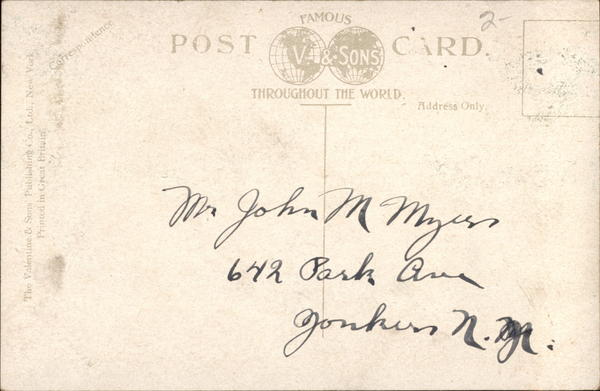 FAMOUS
POST CARD.
V. & SONS
THROUGHOUT THE WORLD.
Correspondence
Address Only.
2-
The Valentine & Sons Publishing Co., Ltd., New York.
Printed in Great Britain.
Mr John M Myers
642 Park Ave
Yonkers N.Y.